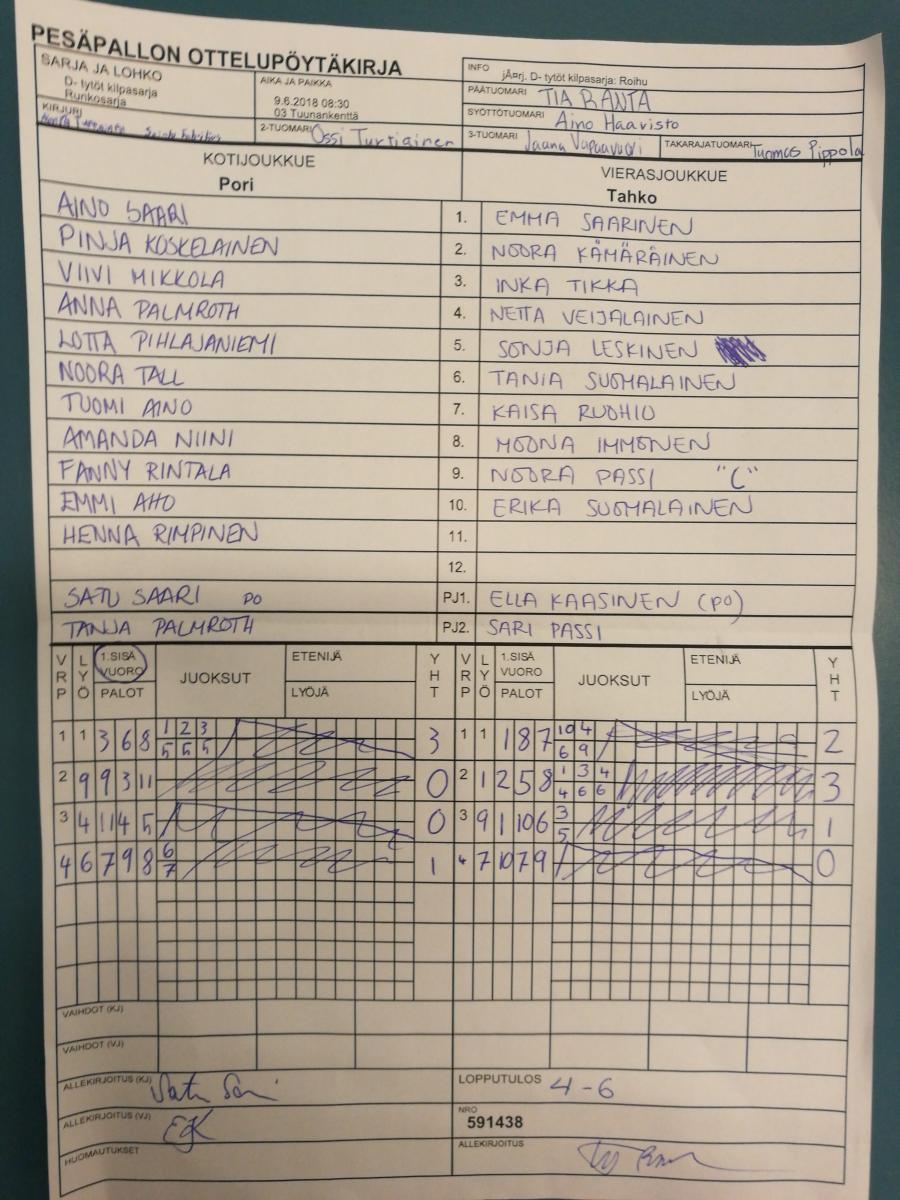 PESÄPALLON OTTELUPÖYTÄKIRJA
SARJA JA LOHKO
D- tytöt kilpasarja
Runkosarja
AIKA JA PAIKKA
9.6.2018 08:30
03 Tuunankenttä
INFO
jÄ¤rj. D- tytöt kilpasarja: Roihu
PÄÄTUOMARI TIA RANTA
SYÖTTÖTUOMARI Aino Haavisto
KIRJURI
2-TUOMARI Ossi Turtiainen
3-TUOMARI Jaana Vapaavuori
TAKARAJATUOMARI Tuomas Pippola
KOTIJOUKKUE
Pori
VIERASJOUKKUE
Tahko
AINO SAARI 1. EMMA SAARINEN
PINJA KOSKELAINEN 2. NOORA KÄMÄRÄINEN
VIIVI MIKKOLA 3. INKA TIKKA
ANNA PALMROTH 4. NETTA VEIJALAINEN
LOTTA PIHLAJANIEMI 5. SONJA LESKINEN
NOORA TALL 6. TANIA SUOMALAINEN
TUOMI AINO 7. KAISA RUOHIO
AMANDA NIINI 8. MOONA IMMONEN
FANNY RINTALA 9. NOORA PASSI "C"
EMMI AHO 10. ERIKA SUOMALAINEN
HENNA RIMPINEN 11.
12.
SATU SAARI PO PJ1. ELLA KAASINEN (PO)
TANJA PALMROTH PJ2. SARI PASSI
VRP LYÖ 1.SISÄ VUORO PALOT JUOKSUT ETENIJÄ LYÖJÄ YHT VRP LYÖ 1.SISÄ VUORO PALOT JUOKSUT ETENIJÄ LYÖJÄ YHT
1 1 3 6 8 1/5 2/5 3/5 3 1 1 1 8 7 10/6 4/9 2
2 9 9 3 11 0 2 1 2 5 8 1/4 3/6 4/6 3
3 4 11 4 5 0 3 9 1 10 6 3/5 1
4 6 7 9 8 6/7 1 4 7 10 7 9 0
VAIHDOT (KJ)
VAIHDOT (VJ)
ALLEKIRJOITUS (KJ) LOPPUTULOS 4-6
ALLEKIRJOITUS (VJ) EK NRO
591438
HUOMAUTUKSET ALLEKIRJOITUS